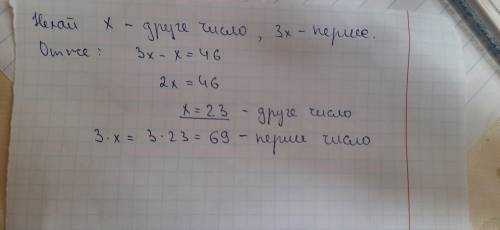 Нехай х - друге число, 3х - перше.
Отже: 3х - х = 46
2х = 46
х = 23 - друге число
3·х = 3·23 = 69 - перше число